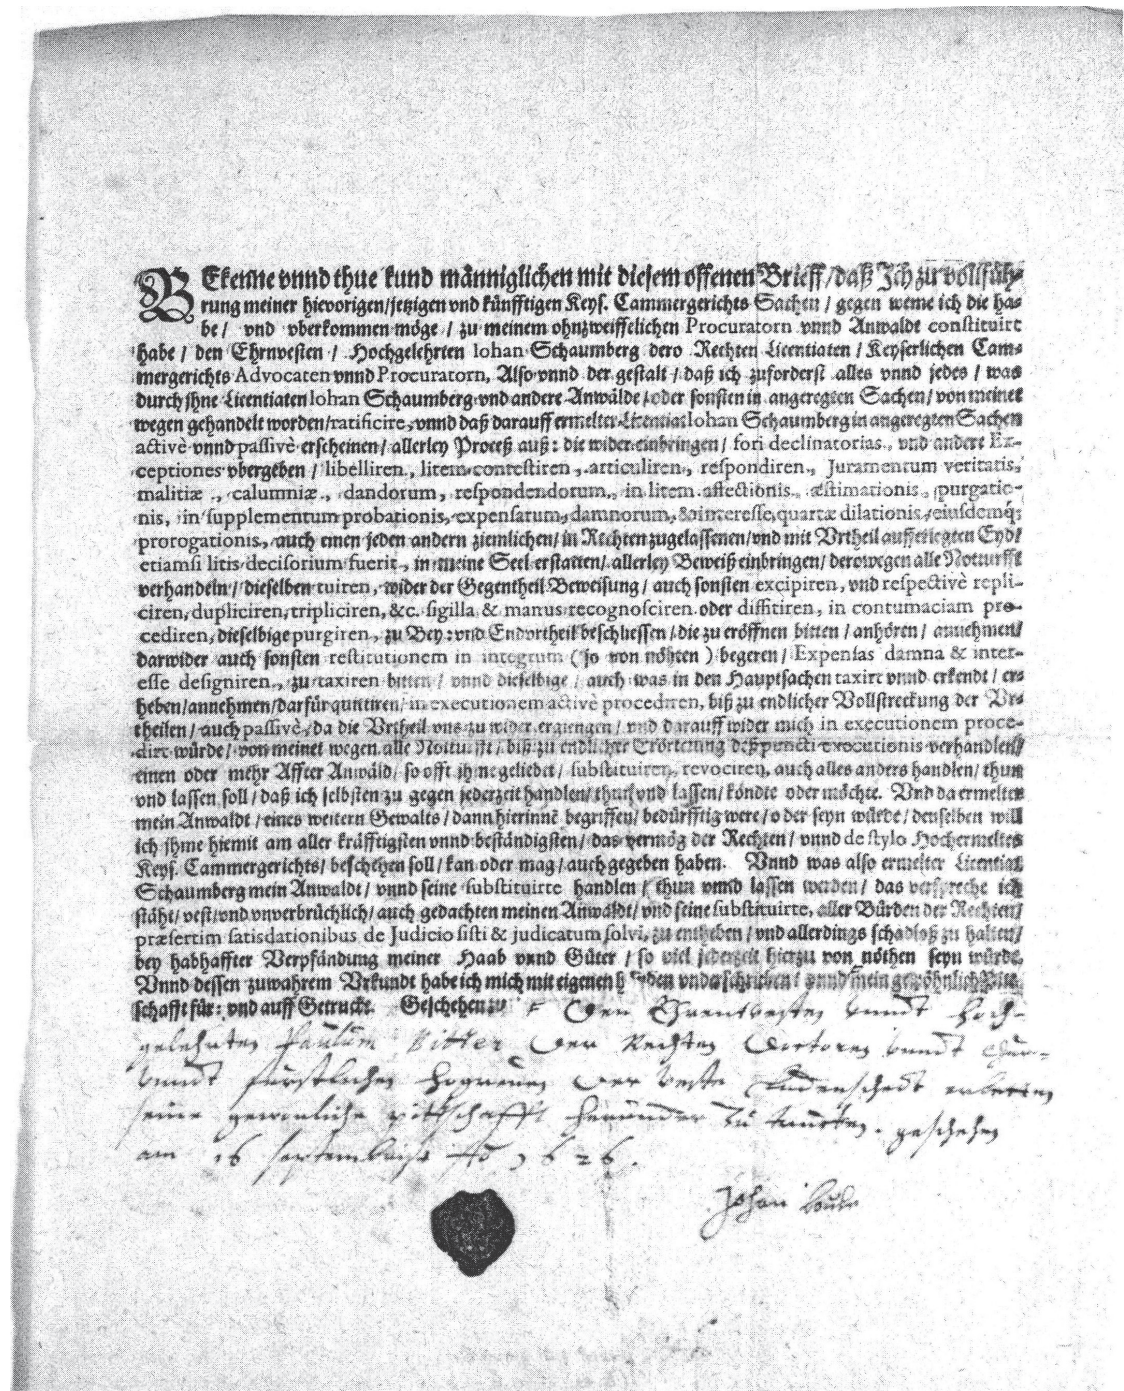 BEkenne vnnd thue kund männiglichen mit diesem offenen Brieff / daß Ich zu vollfüh-
rung meiner hievorigen / jetzigen vnd künfftigen Keys. Cammergerichts Sachen / gegen weme ich die ha-
be / vnd vberkommen möge / zu meinem ohnzweiffelichen Procuratorn vnnd Anwaldt constituirt
habe / den Ehrnvesten / Hochgelehrten Iohan Schaumberg dero Rechten Licentiaten / Keyserlichen Cam-
mergerichts Advocaten vnnd Procuratorn, Also vnnd der gestalt / daß ich zuforderst alles vnnd jedes / was
durch jhne Licentiaten Iohan Schaumberg vnd andere Anwälde / oder sonsten in angeregten Sachen / von meinet
wegen gehandelt worden / ratificire, vnnd daß darauff ermelter Licentiat Iohan Schaumberg in angeregten Sachen
activè vnnd passivè erscheinen / allerley Proceß auß: die wider einbringen / fori declinatorias, vnd andere Ex-
ceptiones vbergeben / libelliren, litem contestiren, articuliren, respondiren, Juramentum veritatis,
malitiæ, calumniæ, dandorum, respondendorum, in litem affectionis, æstimationis, purgatio-
nis, in supplementum probationis, expensarum, damnorum, & interesse, quartæ dilationis, eiusdemq;
prorogationis, auch einen jeden andern ziemlichen / in Rechten zugelassenen / vnd mit Vrtheil aufferlegten Eydt
etiamsi litis decisorium fuerit, in meine Seel erstatten / allerley Beweiß einbringen / derowegen alle Notturfft
verhandeln / dieselben tuiren, wider der Gegentheil Beweisung / auch sonsten excipiren, vnd respectivè repli-
ciren, dupliciren, tripliciren, &c. sigilla & manus recognosciren oder diffitiren, in contumaciam pro-
cediren, dieselbige purgiren, zu Bey: vnd Endvrtheil beschliessen / die zu eröffnen bitten / anhören / annehmen /
darwider auch sonsten restitutionem in integrum (so von nöhten) begeren / Expensas damna & inter-
esse designiren, zu taxiren bitten / vnnd dieselbige / auch was in den Hauptsachen taxirt vnnd erkendt / er-
heben / annehmen / darfür quittiren / in executionem activè procediren, biß zu endlicher Vollstreckung der Vr-
theilen / auch passivè, da die Vrtheil vns zu wider ergiengen / vnd darauff wider mich in executionem proce-
dirt würde / von meinet wegen alle Notturfft / biß zu endlicher Erörterung deß puncti executionis verhandlen /
einen oder mehr Affter Anwäld / so offt jhme geliebet / substituiren, revociren, auch alles anders handlen / thun
vnd lassen soll / daß ich selbsten zu gegen jederzeit handlen / thun vnd lassen / köndte oder möchte. Vnd da ermelter
mein Anwaldt / eines weitern Gewalts / dann hierinnē begriffen / bedürfftig were / oder seyn würde / denselben will
ich jhme hiemit am aller kräfftigsten vnnd beständigsten / das vermög der Rechten / vnnd de stylo Hochermeltes
Keys. Cammergerichts / beschehen soll / kan oder mag / auch gegeben haben. Vnnd was also ermelter Licentiat
Schaumberg mein Anwaldt / vnnd seine substituirte handlen / thun vnnd lassen werden / das verspreche ich
stäht / vest / vnd vnverbrüchlich / auch gedachten meinen Anwaldt / vnd seine substituirte, aller Bürden der Rechten /
præsertim satisdationibus de Judicio sisti & judicatum solvi, zu entheben / vnd allerdings schadloß zu halten /
bey habhaffter Verpfändung meiner Haab vnnd Güter / so viel jederzeit hierzu von nöthen seyn würde.
Vnnd dessen zu wahrem Vrkundt habe ich mich mit eigenen henden vnderschrieben / vnnd mein gewöhnlich Pitt-
schafft für: vnd auff Getruckt. Geschehen zu den Ehrentvesten vnndt hoch-
gelehrten Paulum Ritter der Rechten Doctoren vnndt Chur-
vnndt fürstlichen Hogreuen der veste Ludenschedt erbetten
seine gewonliche pittschafft herunder zu trucken. geschehen
am 16 septembris Ao 1626.
Johan